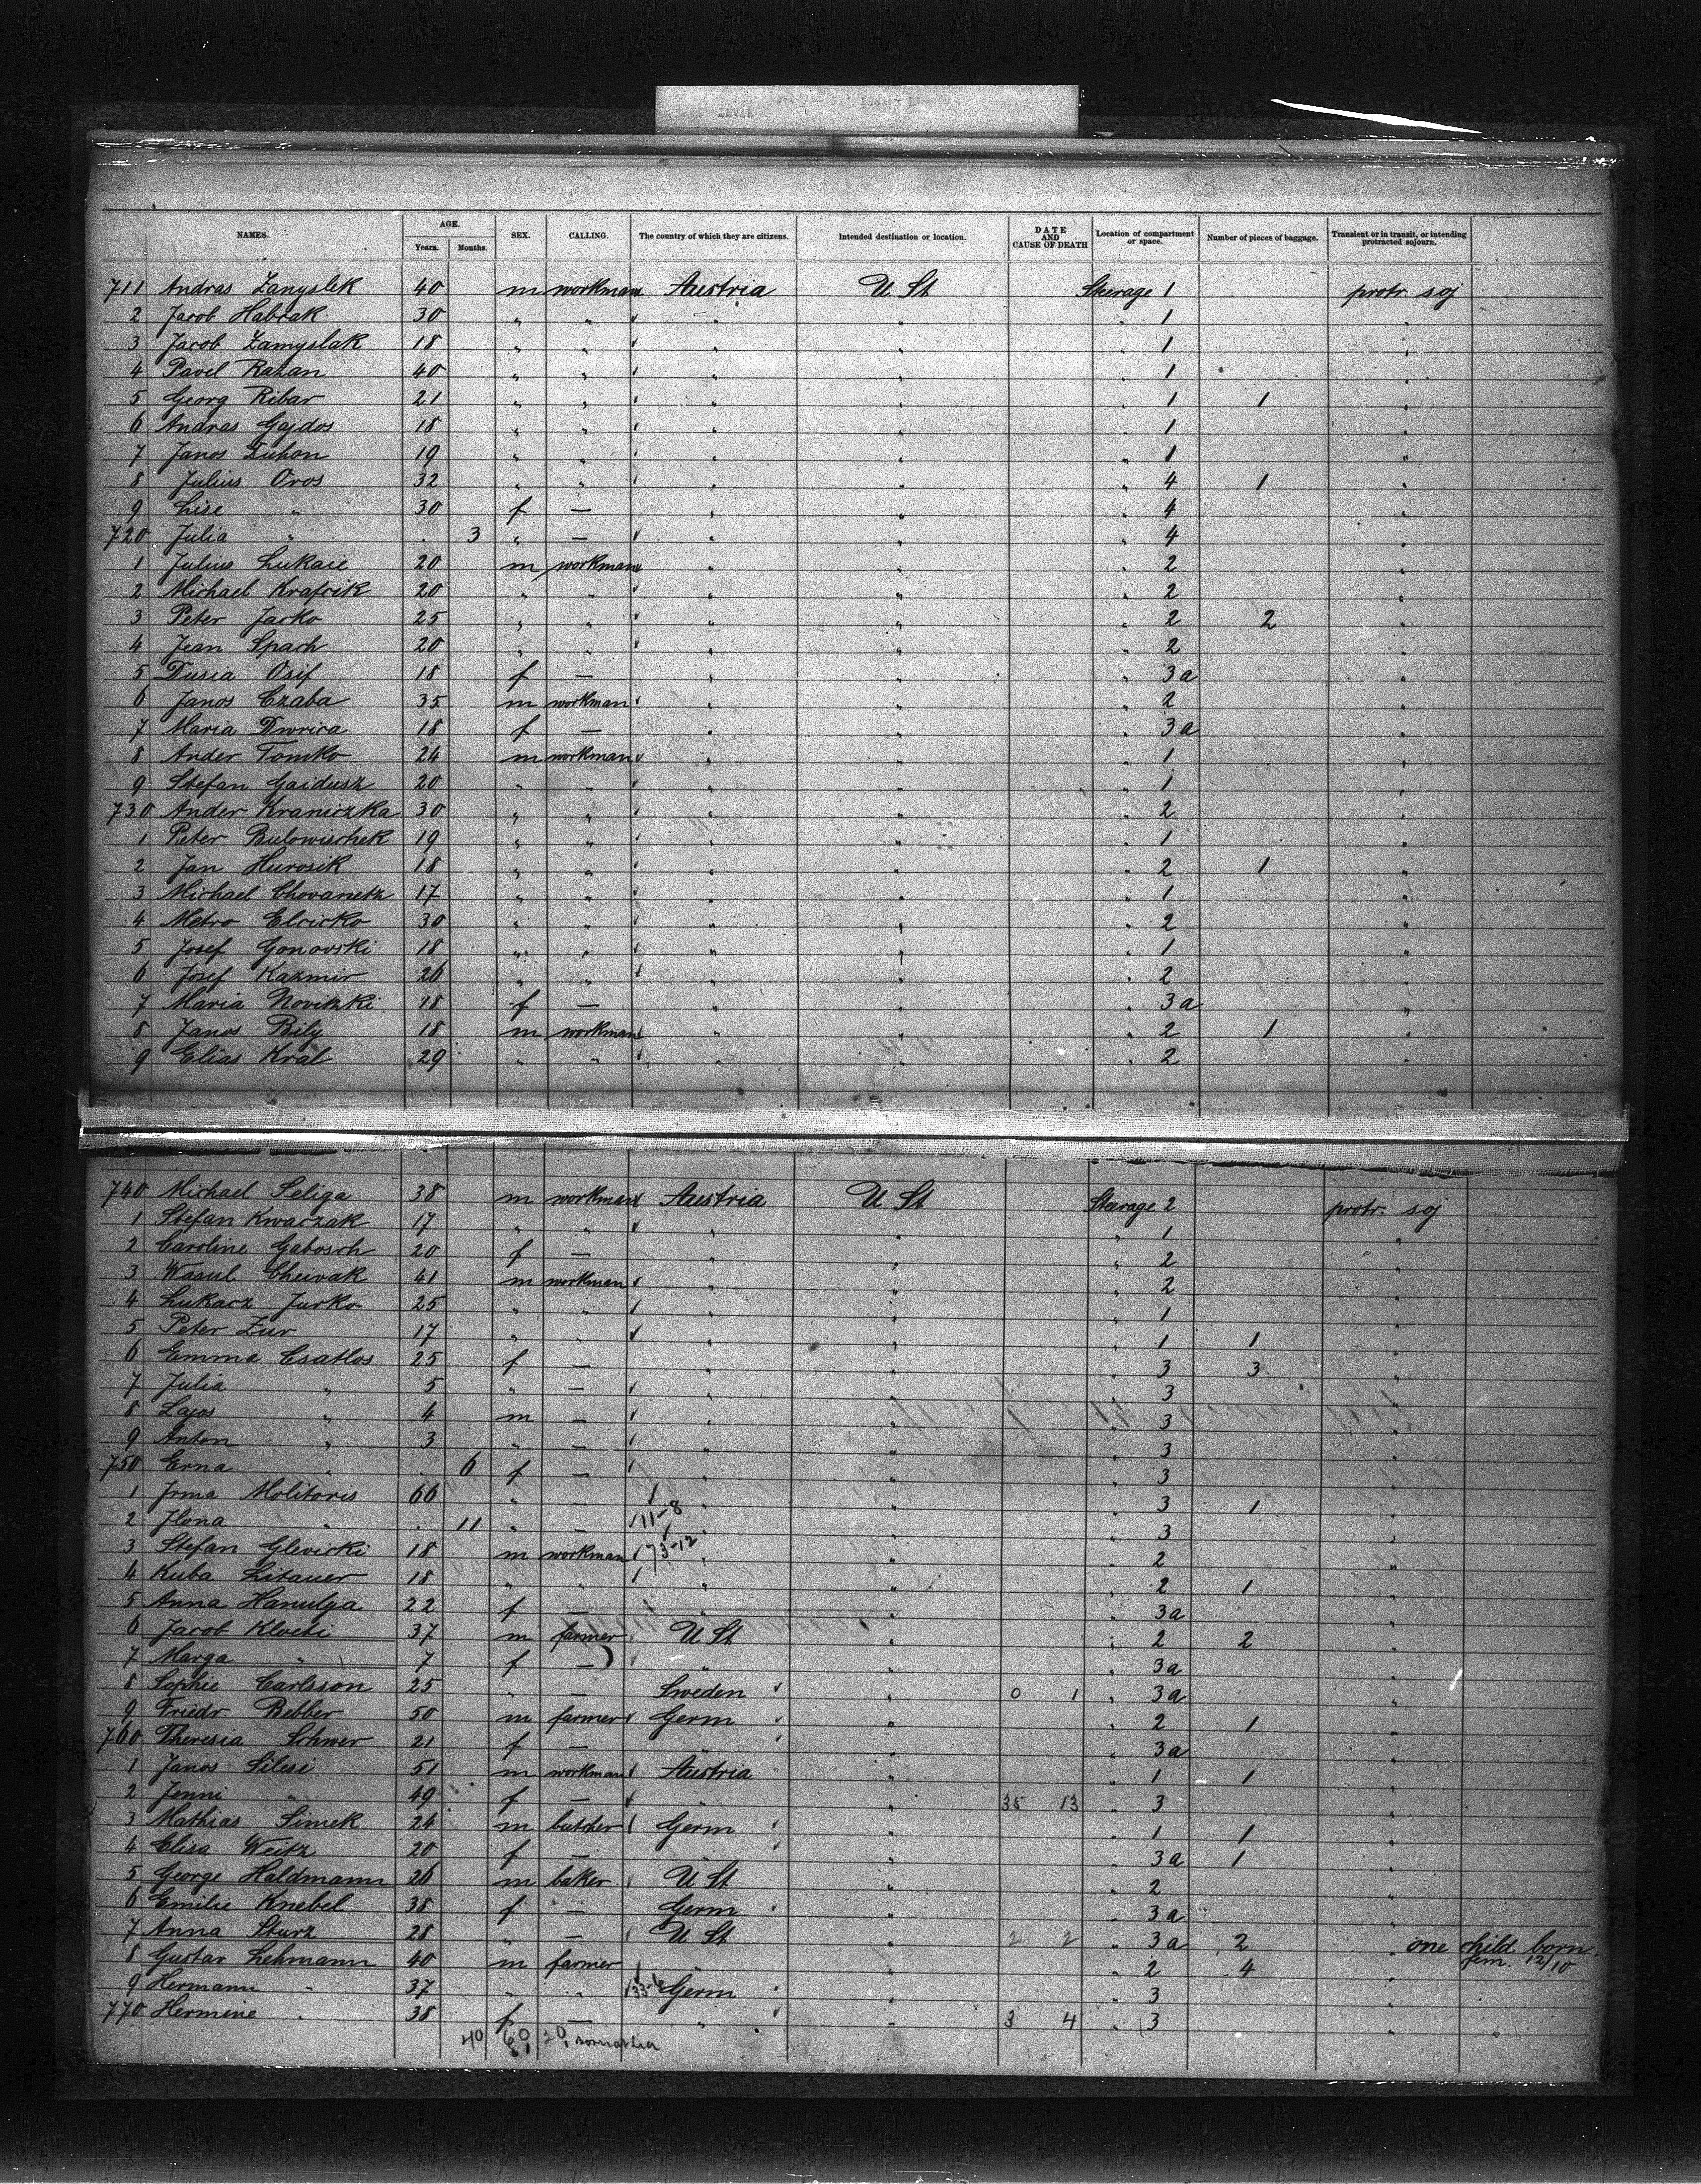 NAMES. AGE. Years. Months. SEX. CALLING. The country of which they are citizens. Intended destination or location. DATE AND CAUSE OF DEATH Location of compartment or space. Number of pieces of baggage. Transient or in transit, or intending protracted sojourn.
711 Andras Zamyslek 40 m workman Austria U St Steerage 1 protr. soj
2 Jacob Habrak 30 " " " " " 1 "
3 Jacob Zamyslak 18 " " " " " 1 "
4 Pavel Razan 40 " " " " " 1 "
5 Georg Ribar 21 " " " " " 1 1 "
6 Andras Gajdos 18 " " " " " 1 "
7 Janos Zuhon 19 " " " " " 1 "
8 Julius Oros 32 " " " " " 4 1 "
9 Lise " 30 f — " " " 4 "
720 Julia " . 3 " — " " " 4 "
1 Julius Lukaie 20 m workman " " " 2 "
2 Michael Krafcik 20 " " " " " 2 "
3 Peter Jarko 25 " " " " " 2 2 "
4 Jean Spach 20 " " " " " 2 "
5 Dusia Osif 18 f — " " " 3a "
6 Janos Czaba 35 m workman " " " 2 "
7 Maria Dwrica 18 f — " " " 3a "
8 Ander Tomko 24 m workman " " " 1 "
9 Stefan Gaidusz 20 " " " " " 1 "
730 Ander Kraniczka 30 " " " " " 2 "
1 Peter Bulowischek 19 " " " " " 1 "
2 Jan Hurosik 18 " " " " " 2 1 "
3 Michael Chovanetz 17 " " " " " 1 "
4 Metro Elcicko 30 " " " " " 2 "
5 Josef Gonovski 18 " " " " " 1 "
6 Josef Kazmir 26 " " " " " 2 "
7 Maria Novitzki 18 f — " " " 3a "
8 Janos Bily 18 m workman " " " 2 1 "
9 Elias Kral 29 " " " " " 2 "
740 Michael Seliga 38 m workman Austria U St Steerage 2 protr. soj
1 Stefan Kwaczak 17 " " " " " 1 "
2 Caroline Gabosch 20 f — " " " 2 "
3 Wasul Cheivak 41 m workman " " " 2 "
4 Lukacz Jurko 25 " " " " " 1 "
5 Peter Zur 17 " " " " " 1 1 "
6 Emma Csatlos 25 f — " " " 3 3 "
7 Julia " 5 " — " " " 3 "
8 Lajos " 4 m — " " " 3 "
9 Anton " 3 " — " " " 3 "
750 Erna " . 6 f — " " " 3 "
1 Irma Molitoris 66 " — " " " 3 1 "
2 Ilona " . 11 " — 11-8 " " " 3 "
3 Stefan Glevicki 18 m workman 73-12 " " " 2 "
4 Kuba Litauer 18 " " " " " 2 1 "
5 Anna Hanulya 22 f — " " " 3a "
6 Jacob Klocki 37 m farmer U St " " 2 2 "
7 Marga " 7 f — " " " 3a "
8 Sophie Carlsson 25 " — Sweden " 0 1 " 3a "
9 Friedr Bebber 50 m farmer Germ " " 2 1 "
760 Theresia Schwer 21 f — " " " 3a "
1 Janos Silesi 51 m workman Austria " " 1 1 "
2 Jenni " 49 f — " " 35 13 " 3 "
3 Mathias Simek 24 m butcher Germ " " 1 1 "
4 Elisa Weitz 20 f — " " " 3a 1 "
5 George Haldmann 26 m baker U St " " 2 "
6 Emilie Knebel 38 f — Germ " " 3a "
7 Anna Sturz 28 " — U St " 2 2 " 3a 2 " one child born
8 Gustav Lehmann 40 m farmer " " " 2 4 " fem. 12/10
9 Hermann " 37 " " 33-6 Germ " " 3 "
770 Hermine " 38 f — " " 3 4 " 3 "